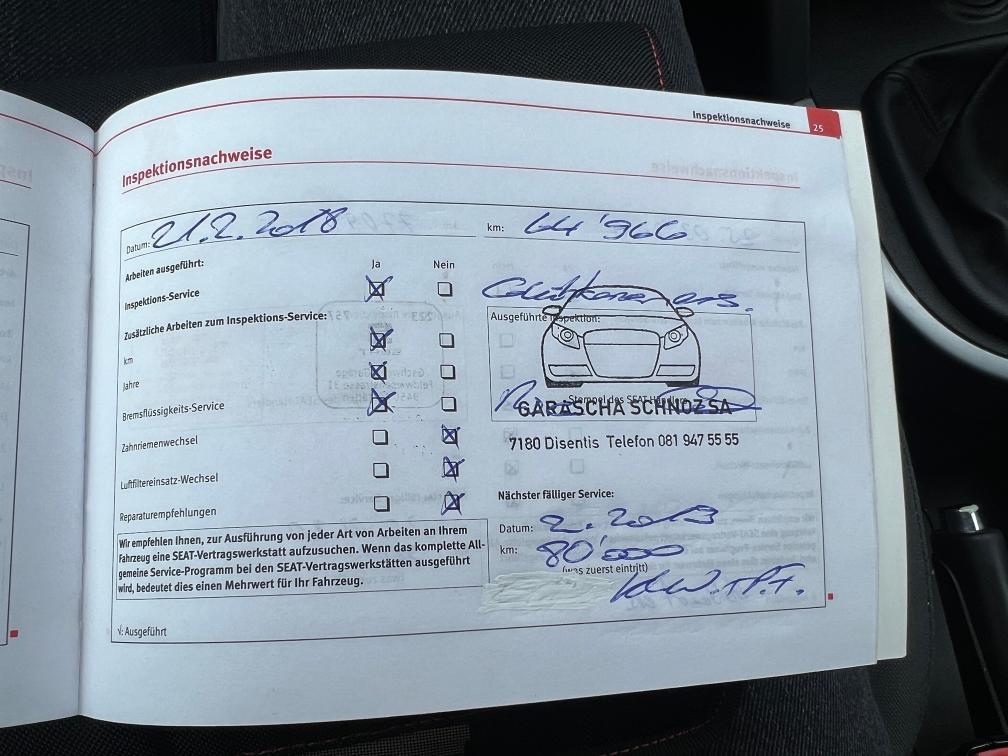 Inspektionsnachweise 25
Inspektionsnachweise
Datum: 21.2.2018 km: 64'966
Arbeiten ausgeführt: Ja Nein
Inspektions-Service
Zusätzliche Arbeiten zum Inspektions-Service:
km
Jahre
Bremsflüssigkeits-Service
Zahnriemenwechsel
Luftfiltereinsatz-Wechsel
Reparaturempfehlungen
Wir empfehlen Ihnen, zur Ausführung von jeder Art von Arbeiten an Ihrem
Fahrzeug eine SEAT-Vertragswerkstatt aufzusuchen. Wenn das komplette All-
gemeine Service-Programm bei den SEAT-Vertragswerkstätten ausgeführt
wird, bedeutet dies einen Mehrwert für Ihr Fahrzeug.
√: Ausgeführt
Ausgeführte Inspektion:
Stempel des SEAT-Händlers
GARASCHA SCHNOZ SA
7180 Disentis Telefon 081 947 55 55
Nächster fälliger Service:
Datum: 2.2019
km: 80'000
(was zuerst eintritt)